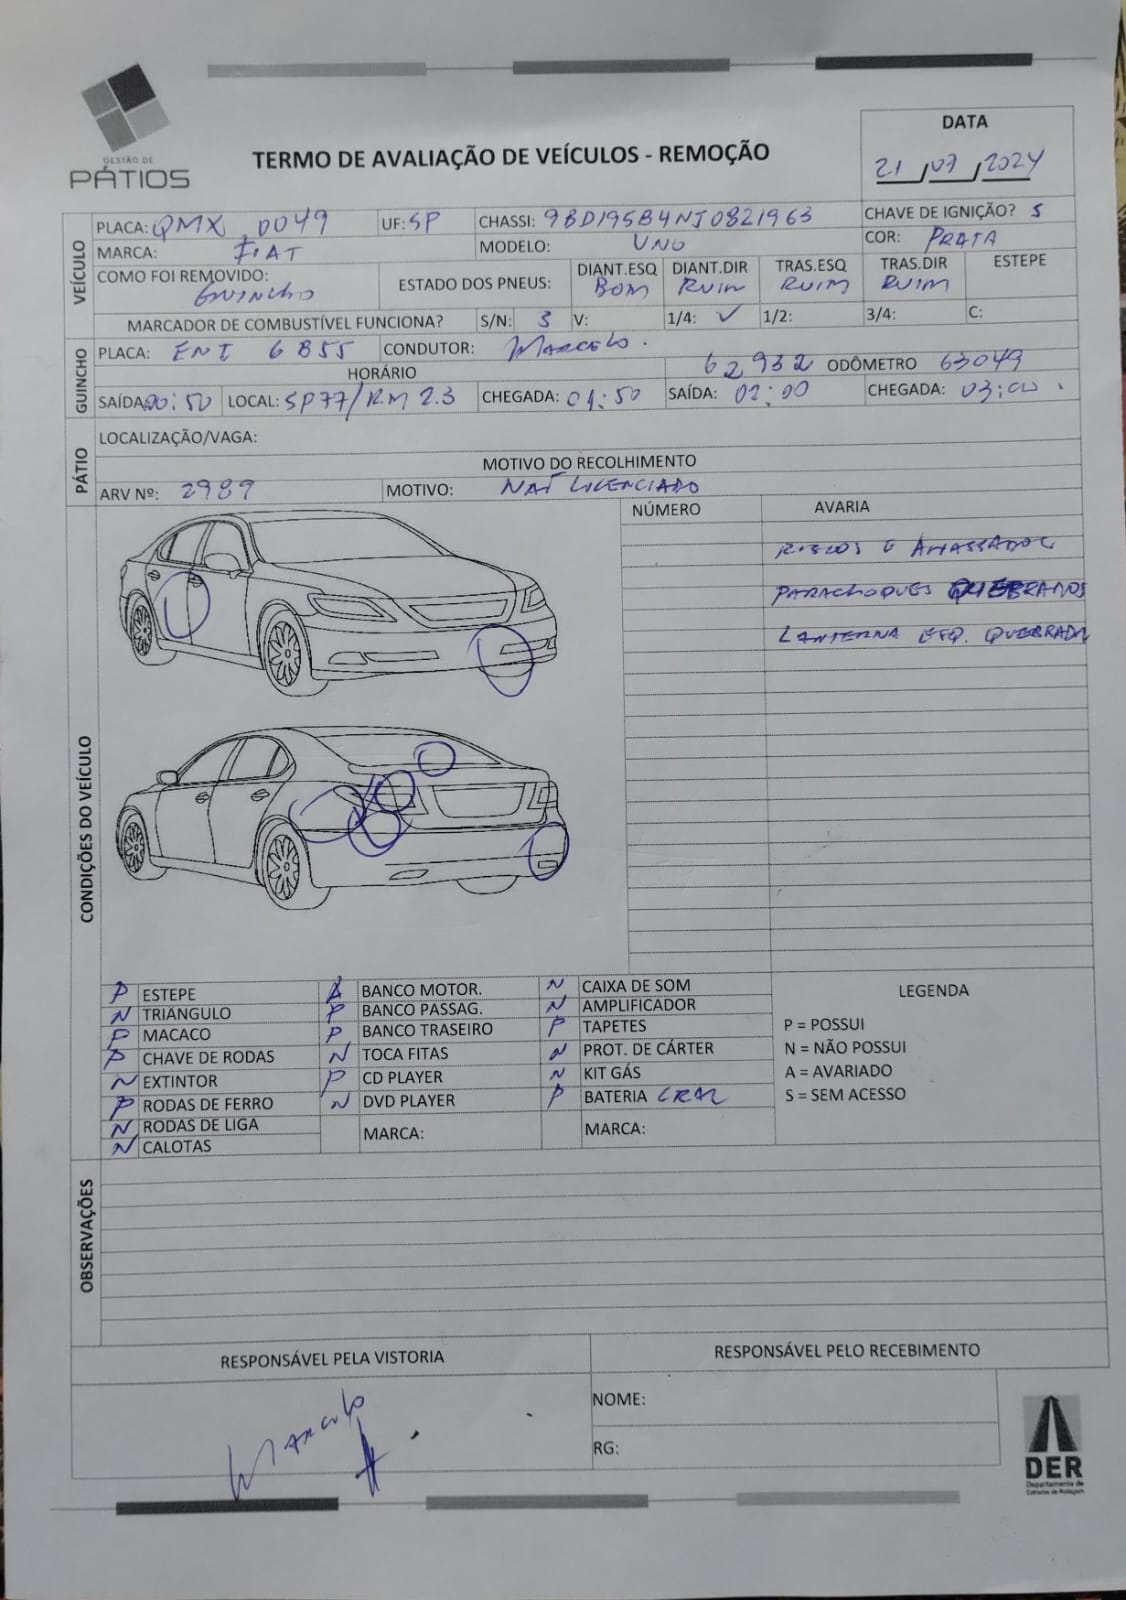 GESTÃO DE
PÁTIOS
TERMO DE AVALIAÇÃO DE VEÍCULOS - REMOÇÃO
DATA
21/07/2024
VEÍCULO
PLACA: QMX 0049 UF: SP CHASSI: 9BD195B4NJ0821963 CHAVE DE IGNIÇÃO? S
MARCA: FIAT MODELO: UNO COR: PRATA
COMO FOI REMOVIDO: GUINCHO ESTADO DOS PNEUS: DIANT.ESQ BOM DIANT.DIR RUIM TRAS.ESQ RUIM TRAS.DIR RUIM ESTEPE
MARCADOR DE COMBUSTÍVEL FUNCIONA? S/N: S V: 1/4: ✓ 1/2: 3/4: C:
GUINCHO
PLACA: ENI 6B55 CONDUTOR: MARCELO.
HORÁRIO 62932 ODÔMETRO 63049
SAÍDA: 00:50 LOCAL: SP77/KM 2.3 CHEGADA: 01:50 SAÍDA: 02:00 CHEGADA: 03:00.
PÁTIO
LOCALIZAÇÃO/VAGA:
MOTIVO DO RECOLHIMENTO
ARV Nº: 2989 MOTIVO: NAŨ LICENCIADO
CONDIÇÕES DO VEÍCULO
NÚMERO AVARIA
RISCOS E AMASSADOS
PARACHOQUES QUEBRADOS
LANTERNA ESQ. QUEBRADA
P ESTEPE A BANCO MOTOR. N CAIXA DE SOM LEGENDA
N TRIÂNGULO P BANCO PASSAG. N AMPLIFICADOR
P MACACO P BANCO TRASEIRO P TAPETES P = POSSUI
P CHAVE DE RODAS N TOCA FITAS N PROT. DE CÁRTER N = NÃO POSSUI
N EXTINTOR P CD PLAYER N KIT GÁS A = AVARIADO
P RODAS DE FERRO N DVD PLAYER P BATERIA CRAL S = SEM ACESSO
N RODAS DE LIGA MARCA: MARCA:
N CALOTAS
OBSERVAÇÕES
RESPONSÁVEL PELA VISTORIA RESPONSÁVEL PELO RECEBIMENTO
MARCELO
NOME:
RG:
DER
Departamento de
Estradas de Rodagem